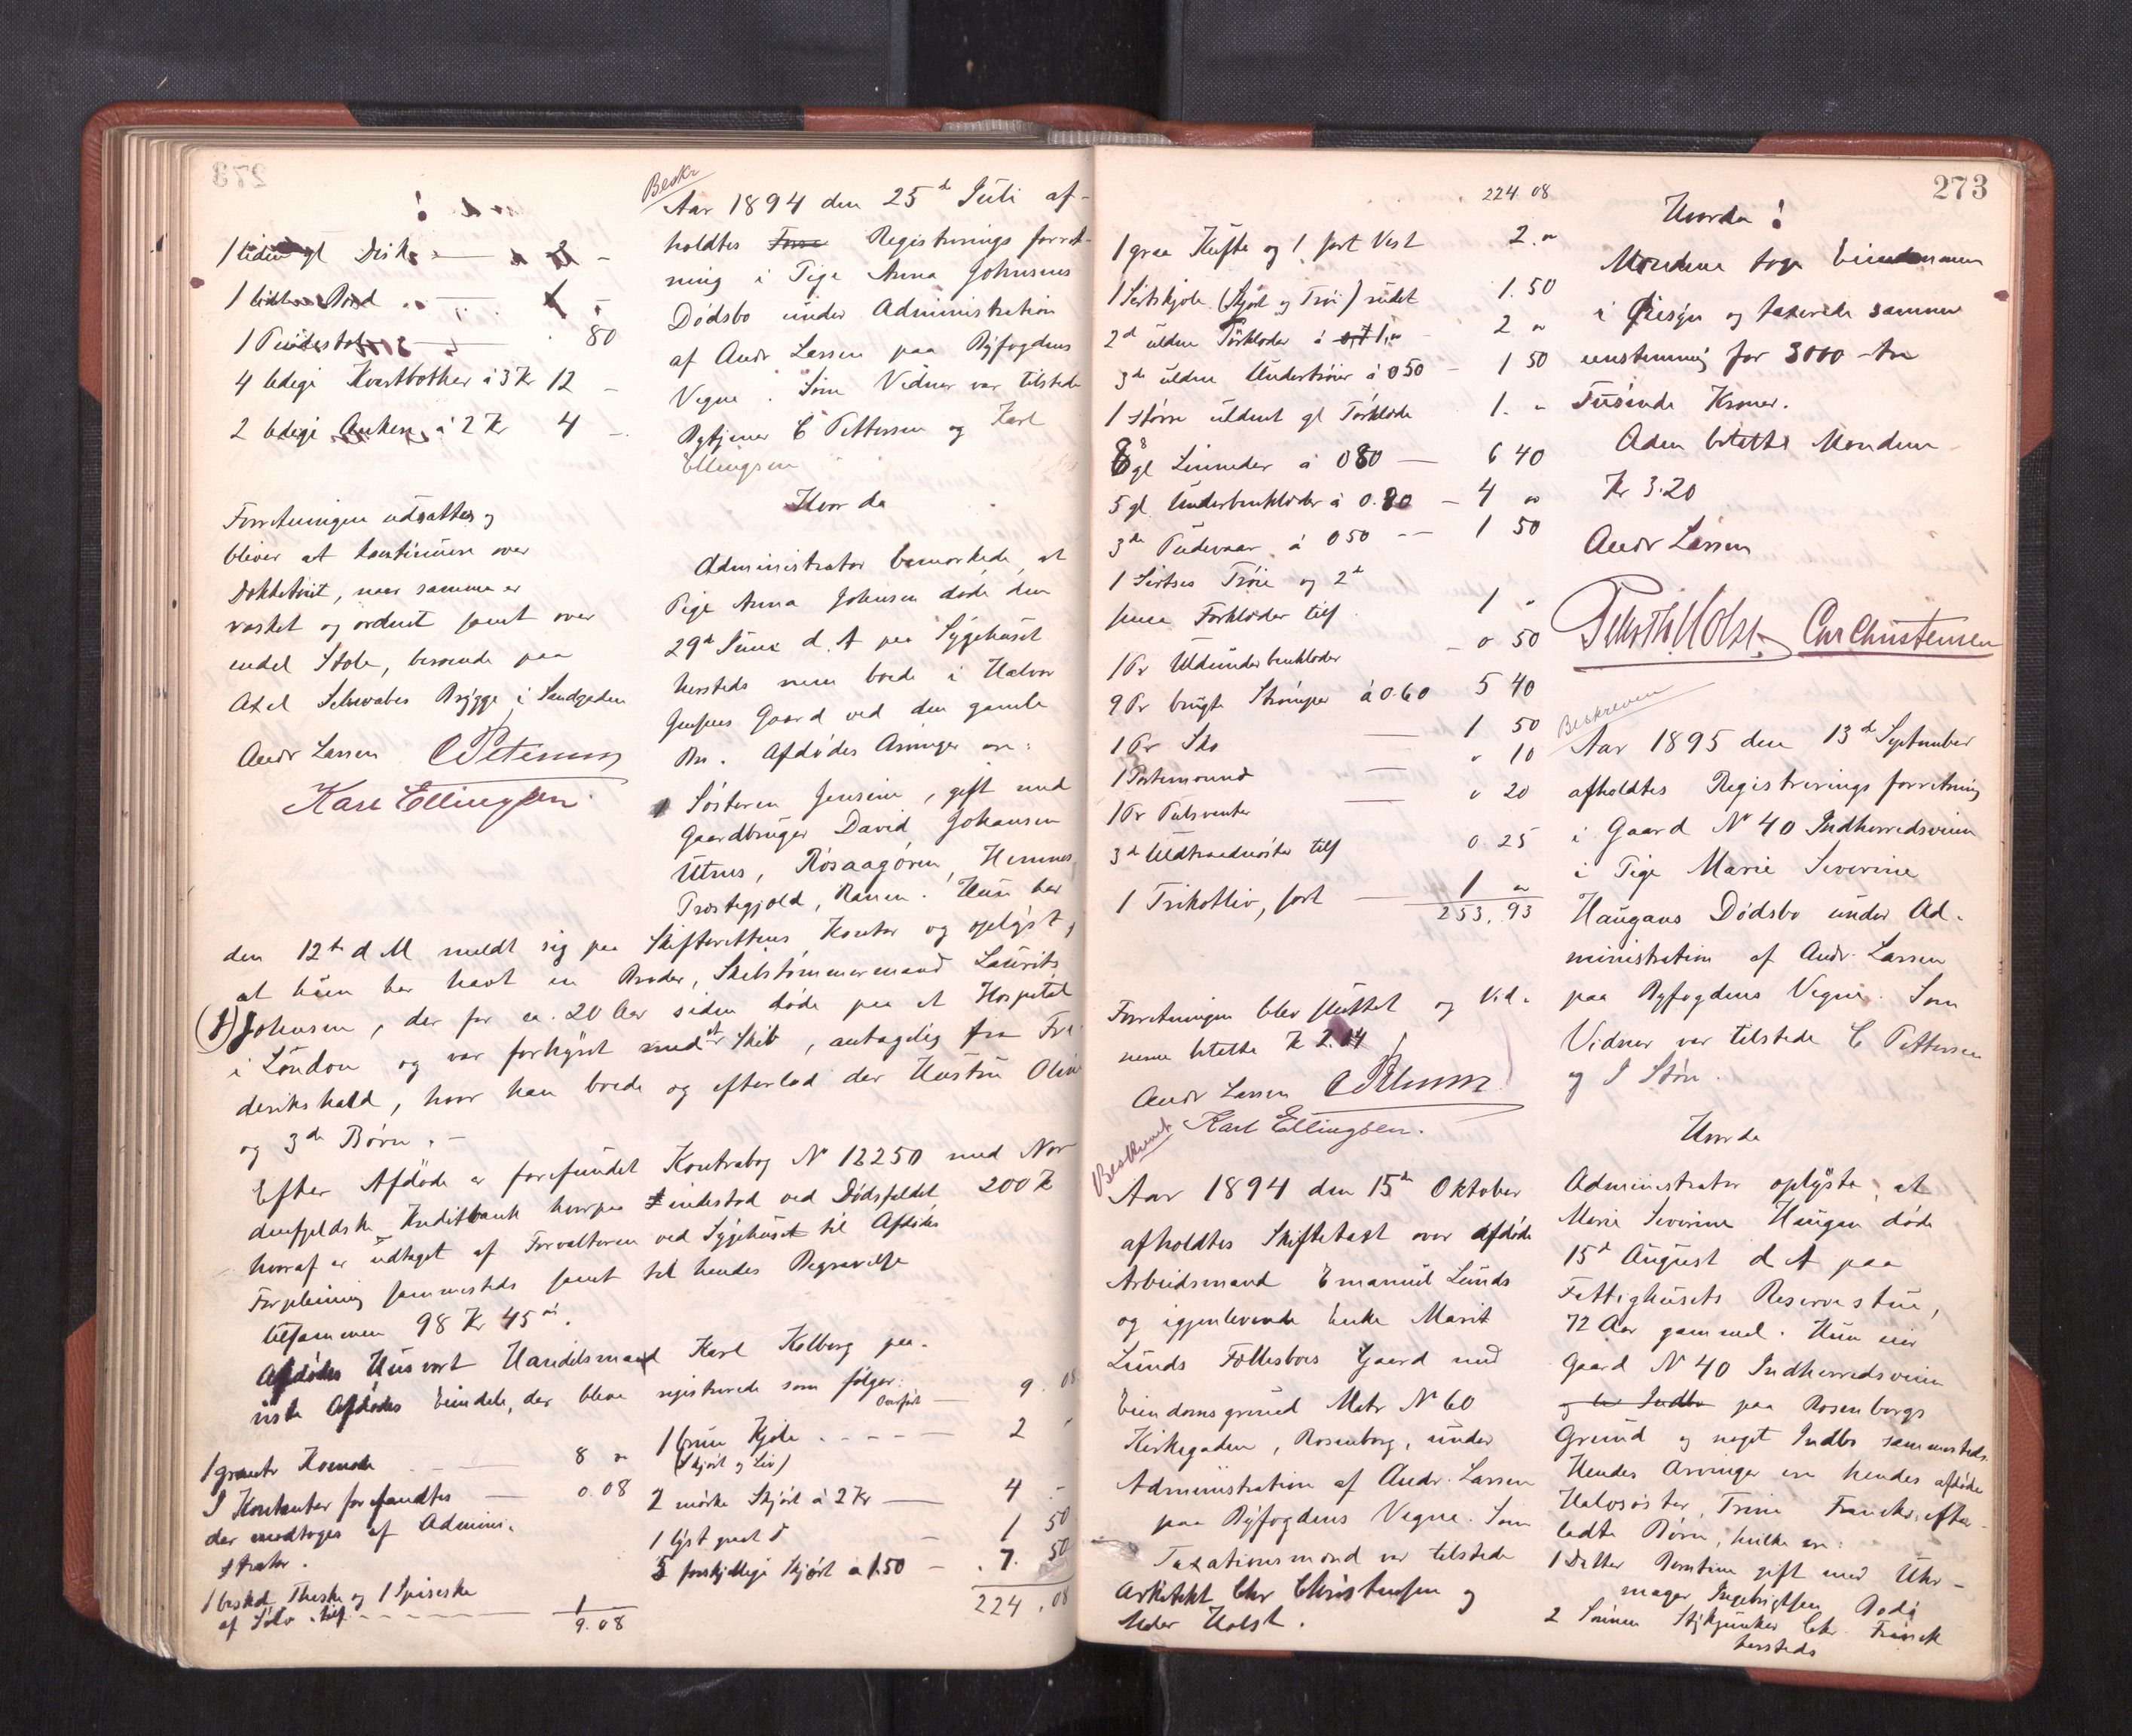 1 liden gl Disk — 2 -
1 liden Bord — 1 -
1 Pindestol — 80
4 ledige Kvartbøtker à 3 Kr 12 -
2 ledige Ankere à 2 Kr 4 -
Forretningen udsattes og
bliver at kontinuere over
Dækketøiet, naar samme er
vasket og ordnet samt over
endel Stole, beroende paa
Axel Schwabes Brygge i Sandgaden
Andr Larsen C Pettersen
Karl Ellingsen
Beskr
Aar 1894 den 25de Juli af-
holdtes Registrerings forret-
ning i Pige Anna Johnsens
Dødsbo under Administration
af Andr Larsen paa Byfogdens
Vegne. Som Vidner var tilstede
Bytjener C Pettersen og Karl
Ellingsen
Hvor da
Administrator bemærkede, at
Pige Anna Johnsen døde den
29de Juni d. A paa Sygehuset
hersteds men boede i Halvor
Gaard ved den gamle
Bro. Afdødes Arvinger er:
1 Søsteren Jensine, gift med
Gaardbruger David Johansen
Utnes, Røsaagøren, Hemnes
Præstegjæld, Ranen. Hun har
den 12te d M meldt sig paa Skifterettens Kontor og oplyst,
at hun har havt en Broder, Skibstømmermand Laurits
(J) Johnsen, der for ca. 20 Aar siden døde paa et Hospital
i London og var forhyret med et Skib, antagelig fra Fre-
derikshald, hvor han boede og efterlod der Hustru Oline
og 3de Børn. -
Efter Afdøde er forefundet Kontrabog No 12250 med Nor
denfjeldske Kreditbank hvorpaa indestod ved Dødsfaldet 200 Kr
hvoraf er udtaget af Forvalteren ved Sygehuset til Afdødes
Forpleining sammesteds samt til hendes Begravelse
tilsammen 98 Kr 45 øre.
Afdødes Husvert Handelsmand Karl Kolberg paa-
viste Afdødes Eiendele, der bleve registrerede som følger:
1 Komode — 8 "
I Kontanter forefandtes — 0.08
der modtoges af Admini-
strator.
1 beskad Theske og 1 Spiseske
af Sølv tils. — 1
9.08
Overført — 9.08
1 brun Kjole — 2 -
(Skjørt og Liv)
2 mørke Skjørt à 2 Kr — 4 -
1 lyst graat do — 1 50
5 forskjellige Skjørt à 1.50 — 7. 50
224.08
273
224 08
1 graa Kufte og 1 sort Vest 2. "
1 Sirtskjole (Skjørt og Trøi) rudet 1.50
2de uldne Tørklæder à 1," 2 "
3de uldne Undertrøier à 0 50 - 1 50
1 større uldent gl Tørklæde 1. "
8 gl Linneder à 0 80 — 6 40
5 gl Underbenklæder à 0.80 - 4 "
3de Pudevaar à 0 50 -- 1 50
1 Sirtses Trøie og 2de
smaa Forklæder tils. 1 "
1 Pr Uldunderbenklæder - " 50
9 Pr brugte Strømper à 0.60 5 40
1 Pr Sko — 1 50
1 Portemonnæ — " 10
1 Pr Pulsvanter — " 20
3de Uldtraadnøster tils 0.25
1 Trikotliv, sort — 1 "
253.93
Forretningen blev sluttet og Vid-
nerne betalte Kr 2.14
Andr Larsen C Pettersen
Karl Ellingsen.
Beskrevet
Aar 1894 den 15de Oktober
afholdtes Skiftetaxt over afdøde
Arbeidsmand Emanuel Lunds
og igjenlevende Enke Marit
Lunds Fællesboes Gaard med
Eiendomsgrund Matr No 60
Kirkegaden, Rosenborg, under
Administration af Andr. Larsen
paa Byfogdens Vegne. Som
Taxationsmænd var tilstede
Arkitekt Chr Christensen og
Peder Holst.
Hvorda:
Mændene tog Eiendommen
i Øiesyn og taxerede samme
eenstemmig for 3000 - tre
Tusinde Kroner.
Aden betalte Mændene
Kr 3.20
Andr Larsen
Peder Th Holst Chr Christensen
Beskreven
Aar 1895 den 13de September
afholdtes Registrerings forretning
i Gaard No 40 Indherredsveien
i Pige Marie Severine
Haugans Dødsbo under Ad-
ministration af Andr. Larsen
paa Byfogdens Vegne. Som
Vidner var tilstede C Pettersen
og J Støre.
Hvorda
Administrator oplyste, at
Marie Severine Haugan døde
15de August d A paa
Fattighusets Reservestue,
72 Aar gammel. Hun eier
Gaard No 40 Indherredsveien
og Indbo paa Rosenborgs
Grund og noget Indbo sammesteds.
Hendes Arvinger er hendes afdøde
Halvsøster, Trine Francks efter-
ladte Børn, hvilke er:
1 Datter Berntine gift med Uhr-
mager Ingebrigtsen Bodø
2 Sønnen Stykjunker Chr. Franck
hersteds